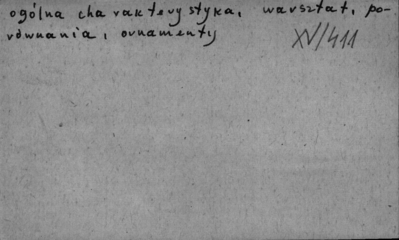 ogólna charakterystyka, warsztat, po-
równania, ornamenty
XV/411